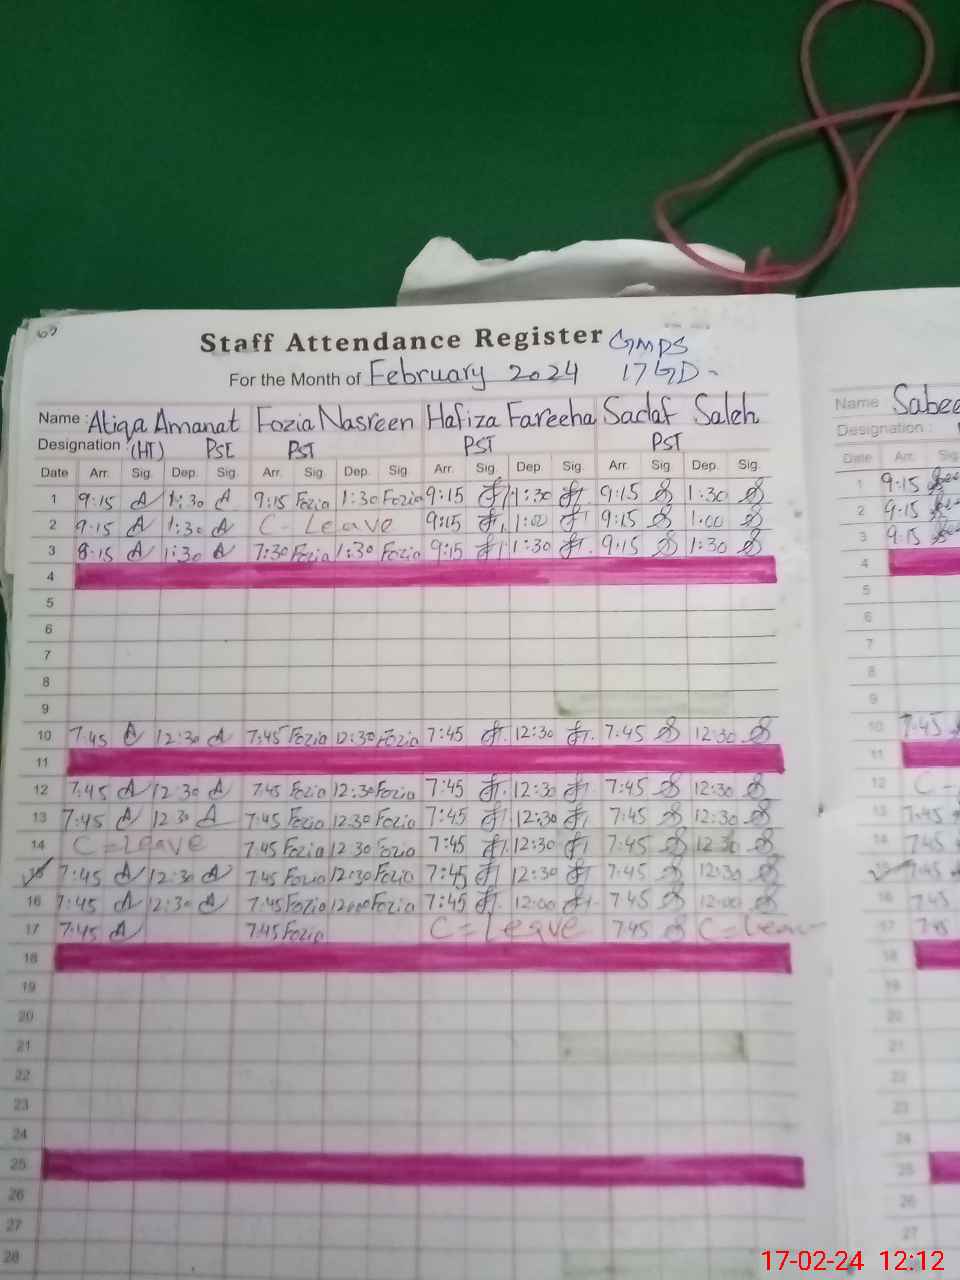 Staff Attendance Register GMPS
For the Month of February 2024 17GD-
Name : Atiqa Amanat Fozia Nasreen Hafiza Fareeha Sadaf Saleh
Designation : (HT) PST PST PST
Date Arr. Sig. Dep. Sig. Arr. Sig. Dep. Sig. Arr. Sig. Dep. Sig. Arr. Sig. Dep. Sig.
1 9:15 A 1:30 A 9:15 Fozia 1:30 Fozia 9:15 1:30 9:15 1:30
2 9:15 A 1:30 A C-Leave 9:15 1:00 9:15 1:00
3 8:15 A 1:30 A 7:30 Fozia 1:30 Fozia 9:15 1:30 9:15 1:30
4
5
6
7
8
9
10 7:45 A 12:30 A 7:45 Fozia 12:30 Fozia 7:45 12:30 7:45 12:30
11
12 7:45 A 12:30 A 7:45 Fozia 12:30 Fozia 7:45 12:30 7:45 12:30
13 7:45 A 12 30 A 7:45 Fozia 12:30 Fozia 7:45 12:30 7:45 12:30
14 C=Leave 7:45 Fozia 12 30 Fozia 7:45 12:30 7:45 12 30
15 7:45 A 12:30 A 7:45 Fozia 12:30 Fozia 7:45 12:30 7:45 12:30
16 7:45 A 12:30 A 7:45 Fozia 12:00 Fozia 7:45 12:00 7:45 12:00
17 7:45 A 7:45 Fozia C=Leave 7:45 C=Leave
18
19
20
21
22
23
24
25
26
27
28
Name
Designation :
Date Arr. Sig.
1 9:15
2 9:15
3 9:15
4
5
6
7
8
9
10 7:45
11
12 C
13 7:45
14 7:45
15 7:45
16 7:45
17 7:45
18
19
20
21
22
23
24
25
26
27
17-02-24 12:12